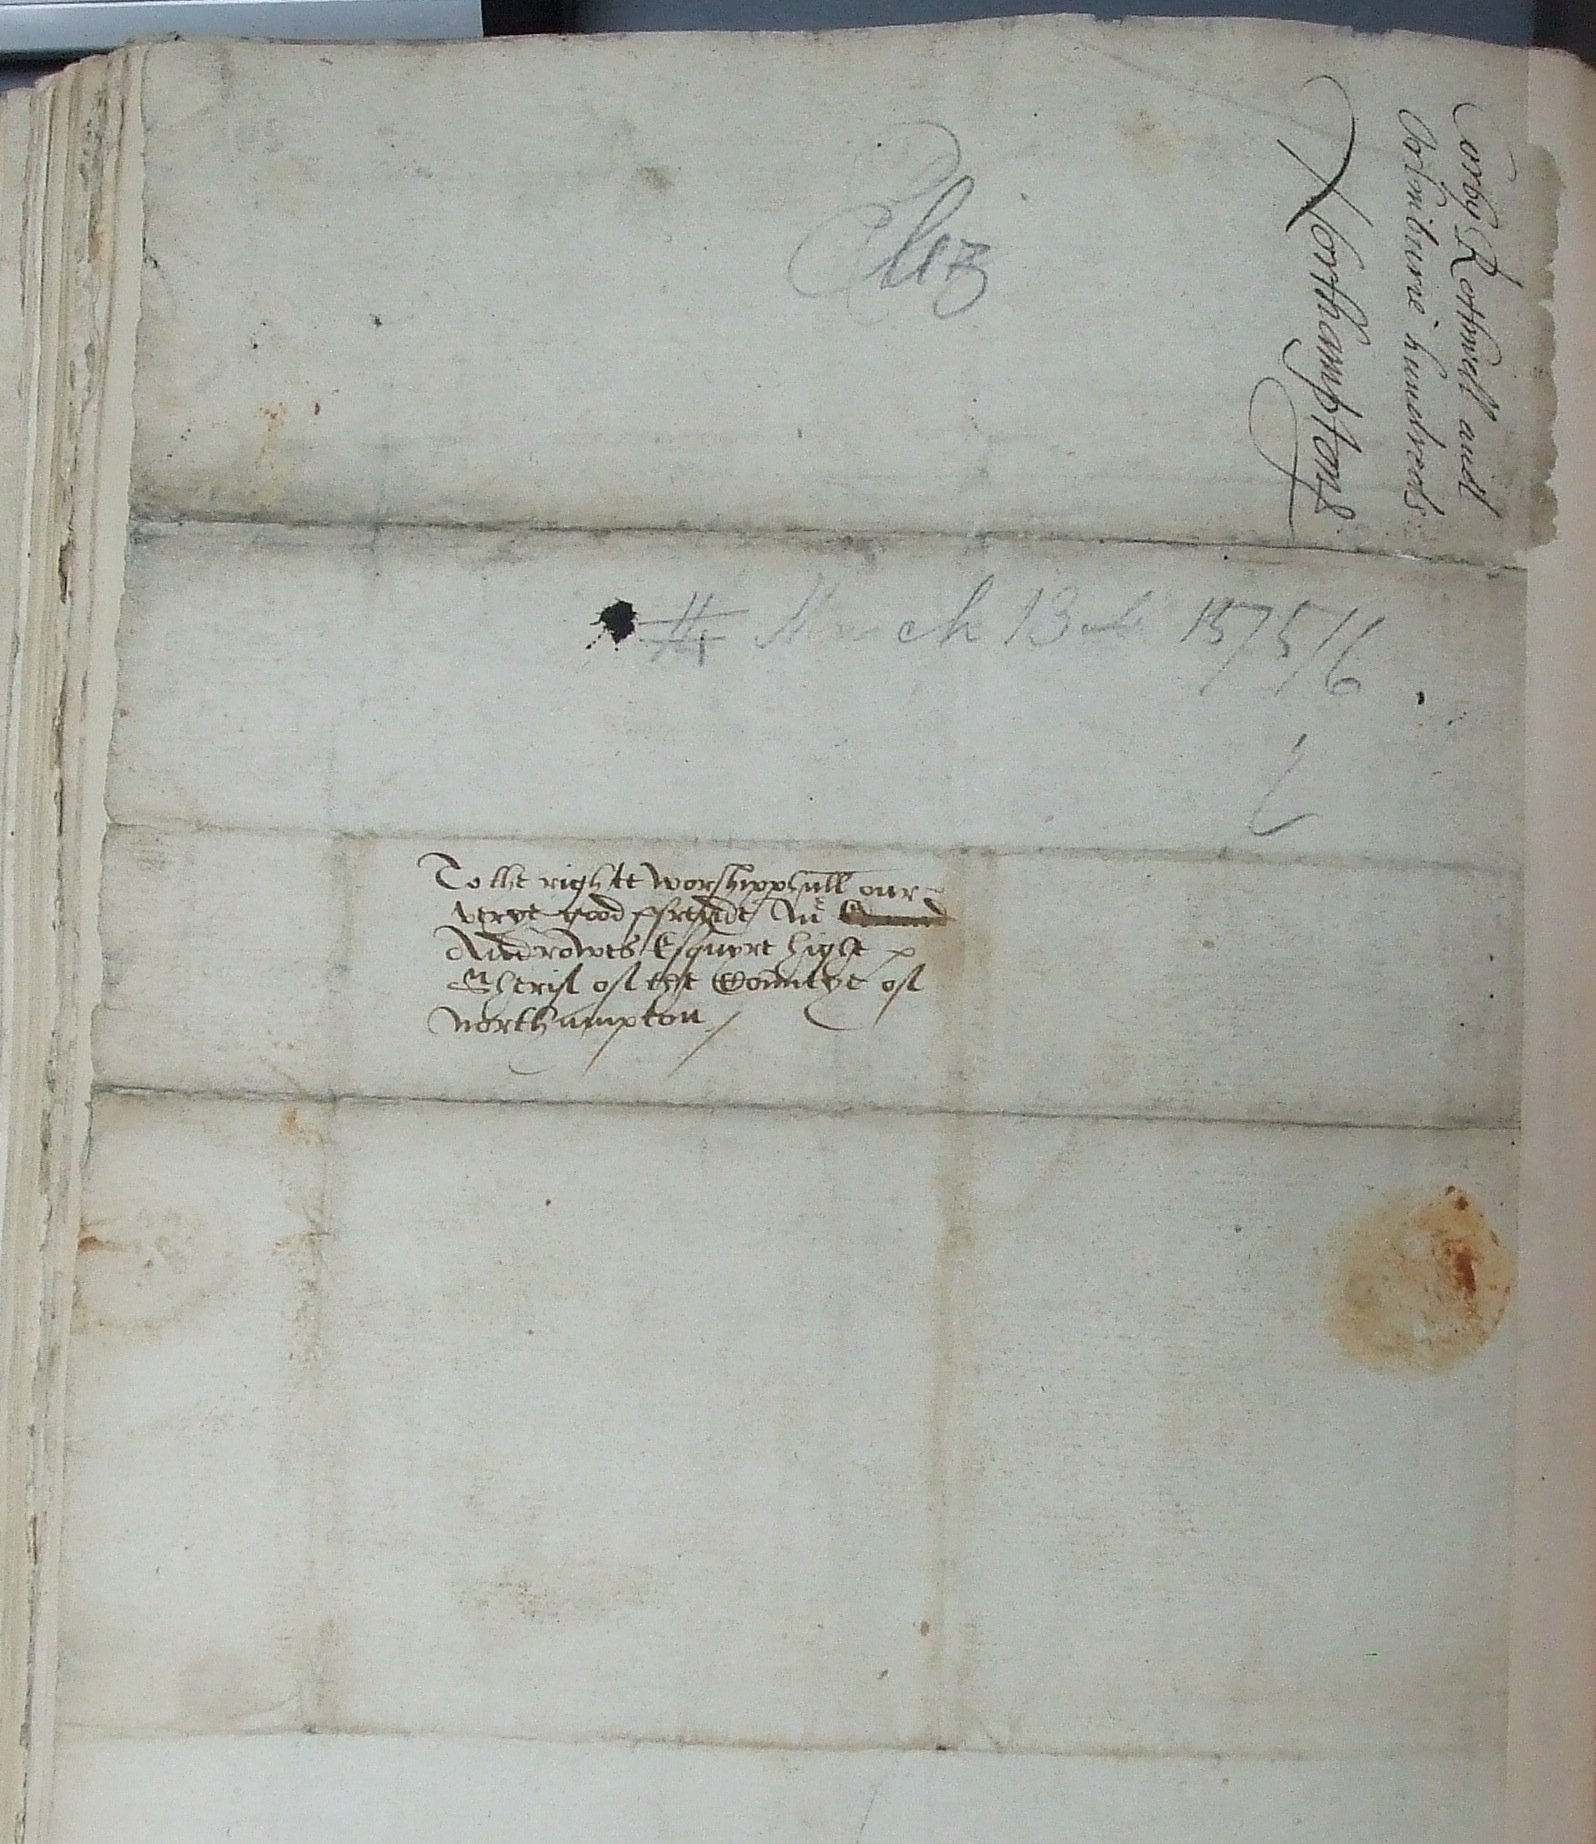 Corby Rothwell and
hundreds
Northamptons
Eliz
March 13 1575/6
To the righte worshippfull our
verye good ffreynde Mr
Androwes Esquyre highe
Sherif of the Countye of
Northampton